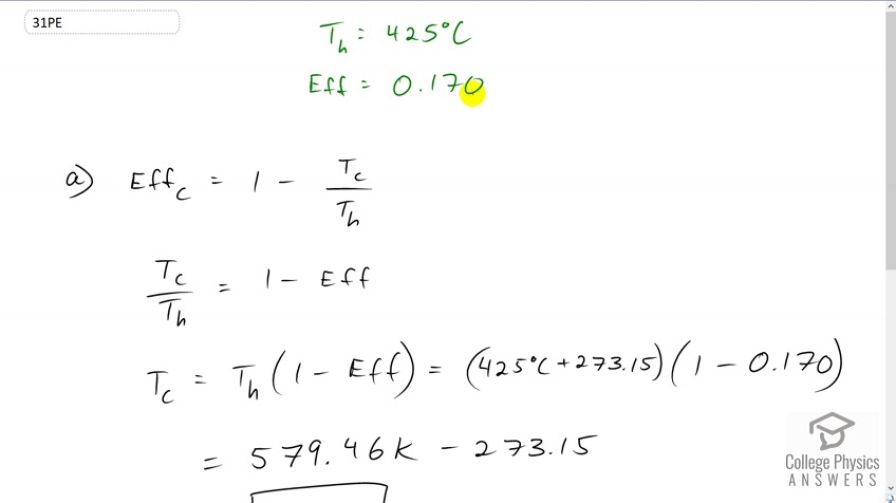 31PE
T_h = 425°C
Eff = 0.170
a) Eff_c = 1 - T_c / T_h
T_c / T_h = 1 - Eff
T_c = T_h (1 - Eff) = (425°C + 273.15)(1 - 0.170)
= 579.46K - 273.15
College Physics
ANSWERS